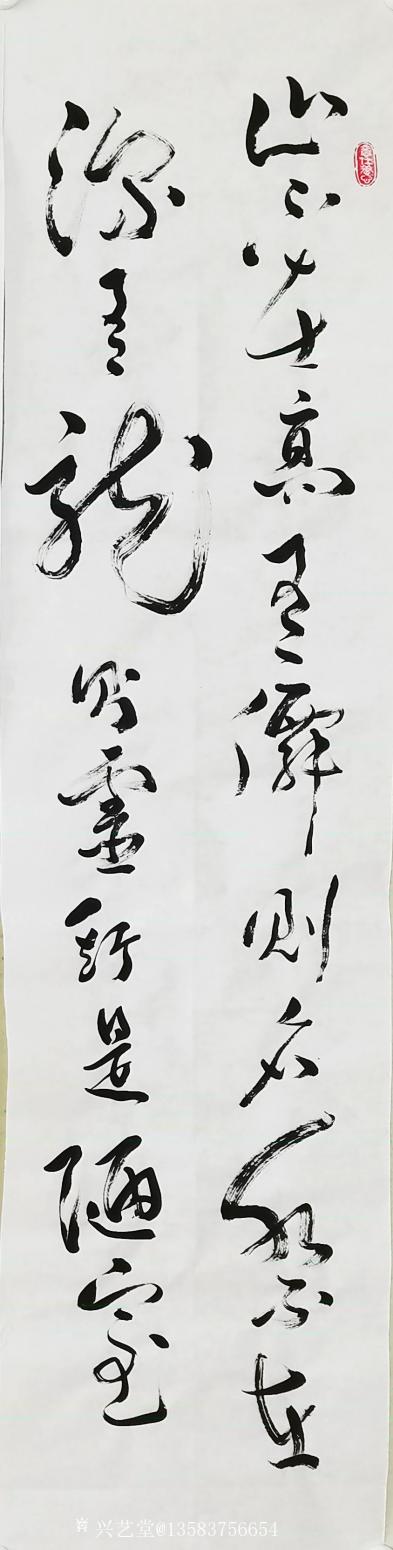 山不在高有僊則名水不在
深有龍則靈斯是陋室
兴艺堂@13583756654